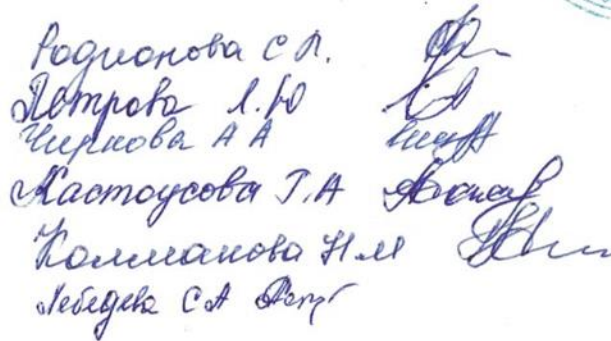 Родионова С Л.
Петрова Л.Ю
Чиркова А А
Мастоусова Т.А
Колмакова Н.М
Лебедева С А